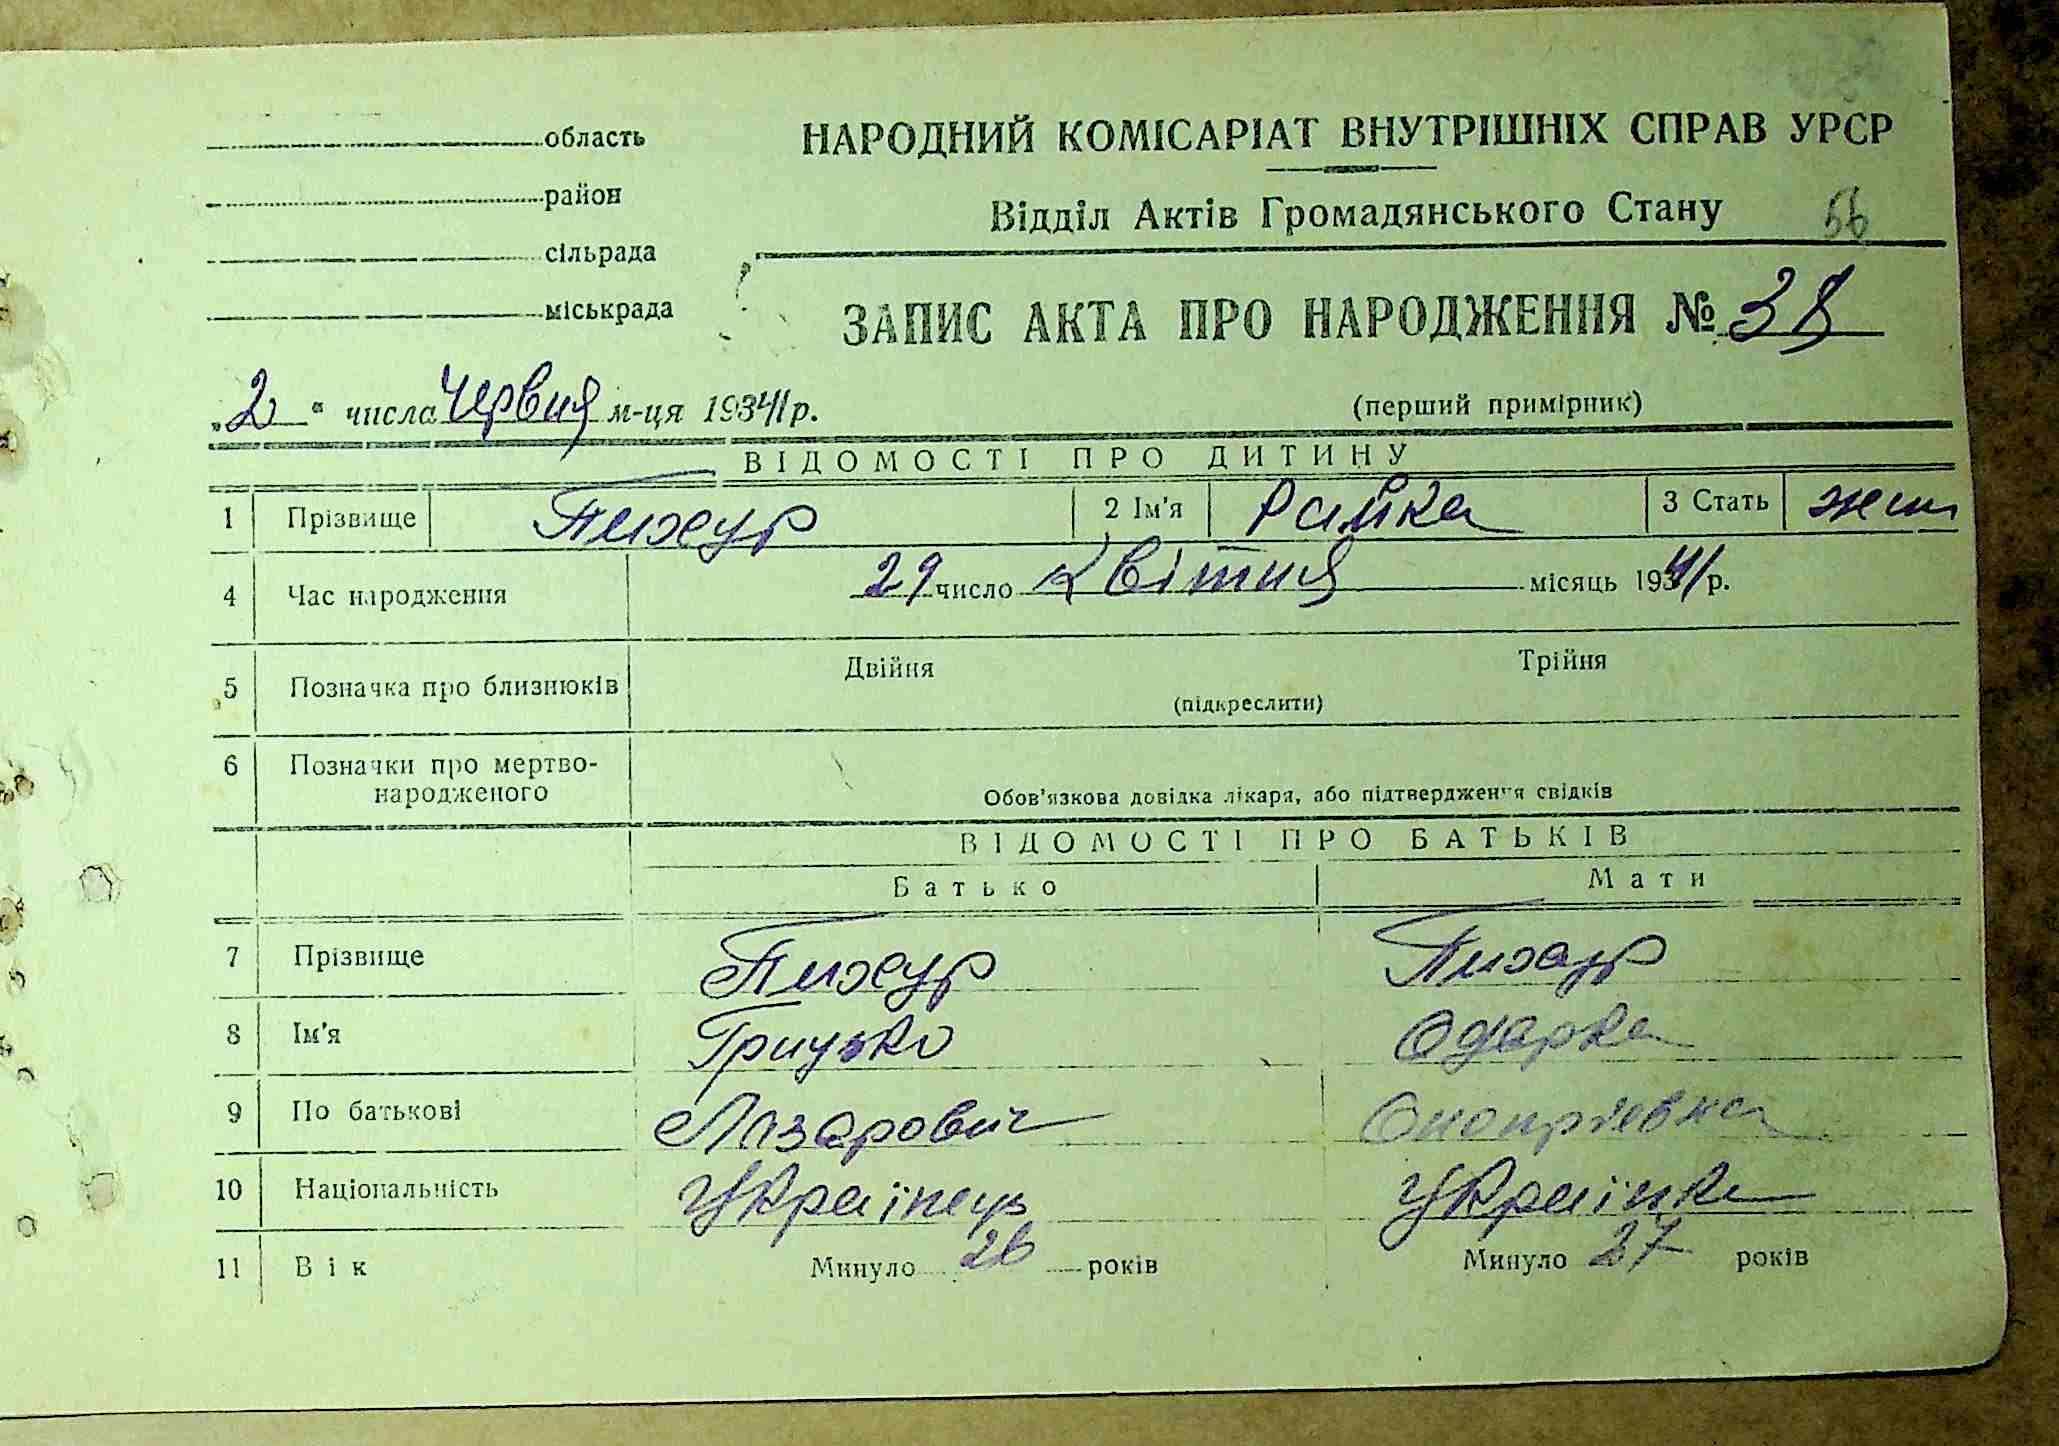 область
НАРОДНИЙ КОМІСАРІАТ ВНУТРІШНІХ СПРАВ УРСР
район
Відділ Актів Громадянського Стану 56
сільрада
міськрада
ЗАПИС АКТА ПРО НАРОДЖЕННЯ № 38
„2“ числа Червня м-ця 1941 р.
(перший примірник)
ВІДОМОСТІ ПРО ДИТИНУ
1 Прізвище Пихур 2 Ім'я Райка 3 Стать жін
4 Час народження 29 число Квітня місяць 1941 р.
5 Позначка про близнюків Двійня Трійня
(підкреслити)
6 Позначки про мертвонародженого
Обов'язкова довідка лікаря, або підтвердження свідків
ВІДОМОСТІ ПРО БАТЬКІВ
Батько Мати
7 Прізвище Пихур Пихур
8 Ім'я Грицько Одарка
9 По батькові Лазарович Оноприевна
10 Національність Українець Українка
11 Вік Минуло 26 років Минуло 27 років